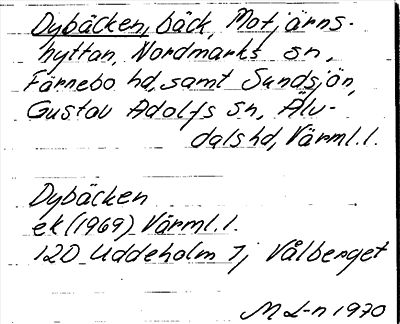 Dybäcken, bäck, Motjärns-
hyttan, Nordmarks sn,
Färnebo hd, samt Sundsjön,
Gustav Adolfs sn, Älv-
dals hd, Värml. l.
Dybäcken
ek (1969) Värml. l.
120 Uddeholm 7j Vålberget
M L-n 1970